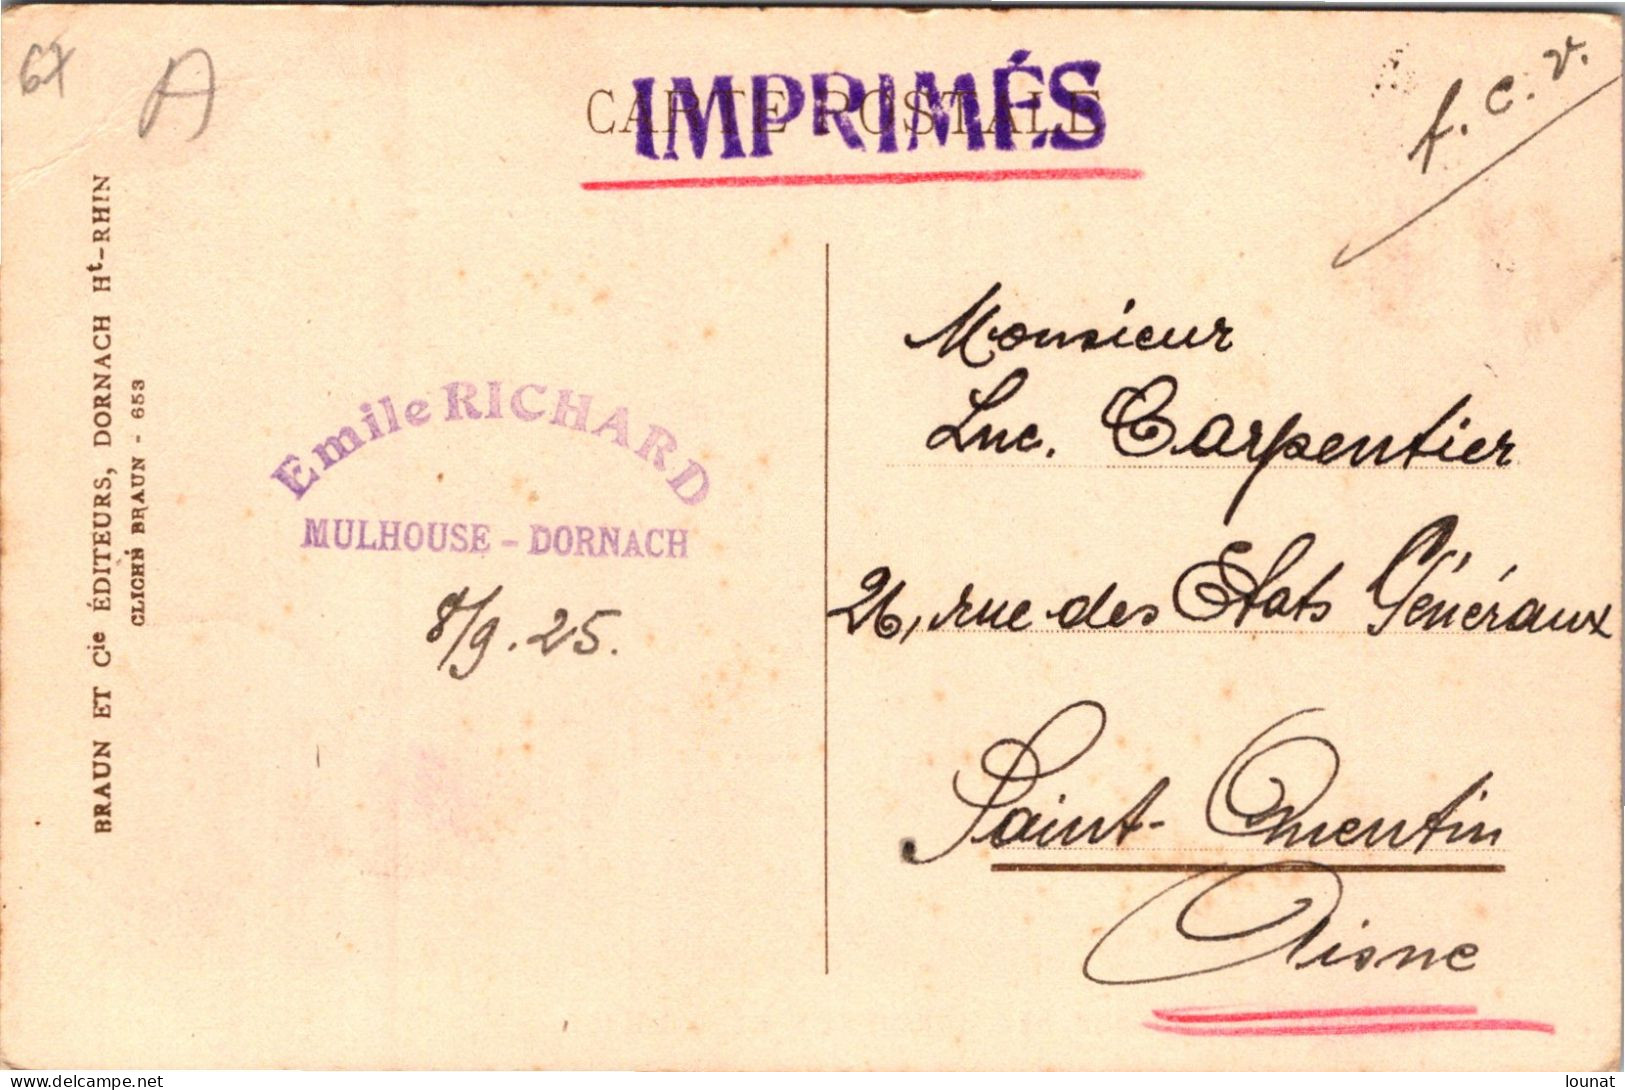 6X
A
CARTE POSTALE
IMPRIMÉS
f. c. v.
BRAUN ET Cie ÉDITEURS, DORNACH Ht-RHIN
CLICHÉ BRAUN - 653
Emile RICHARD
MULHOUSE - DORNACH
8/9.25.
Monsieur
Luc. Carpentier
26, rue des Etats Généraux
Saint-Quentin
Aisne
www.delcampe.net
lounat